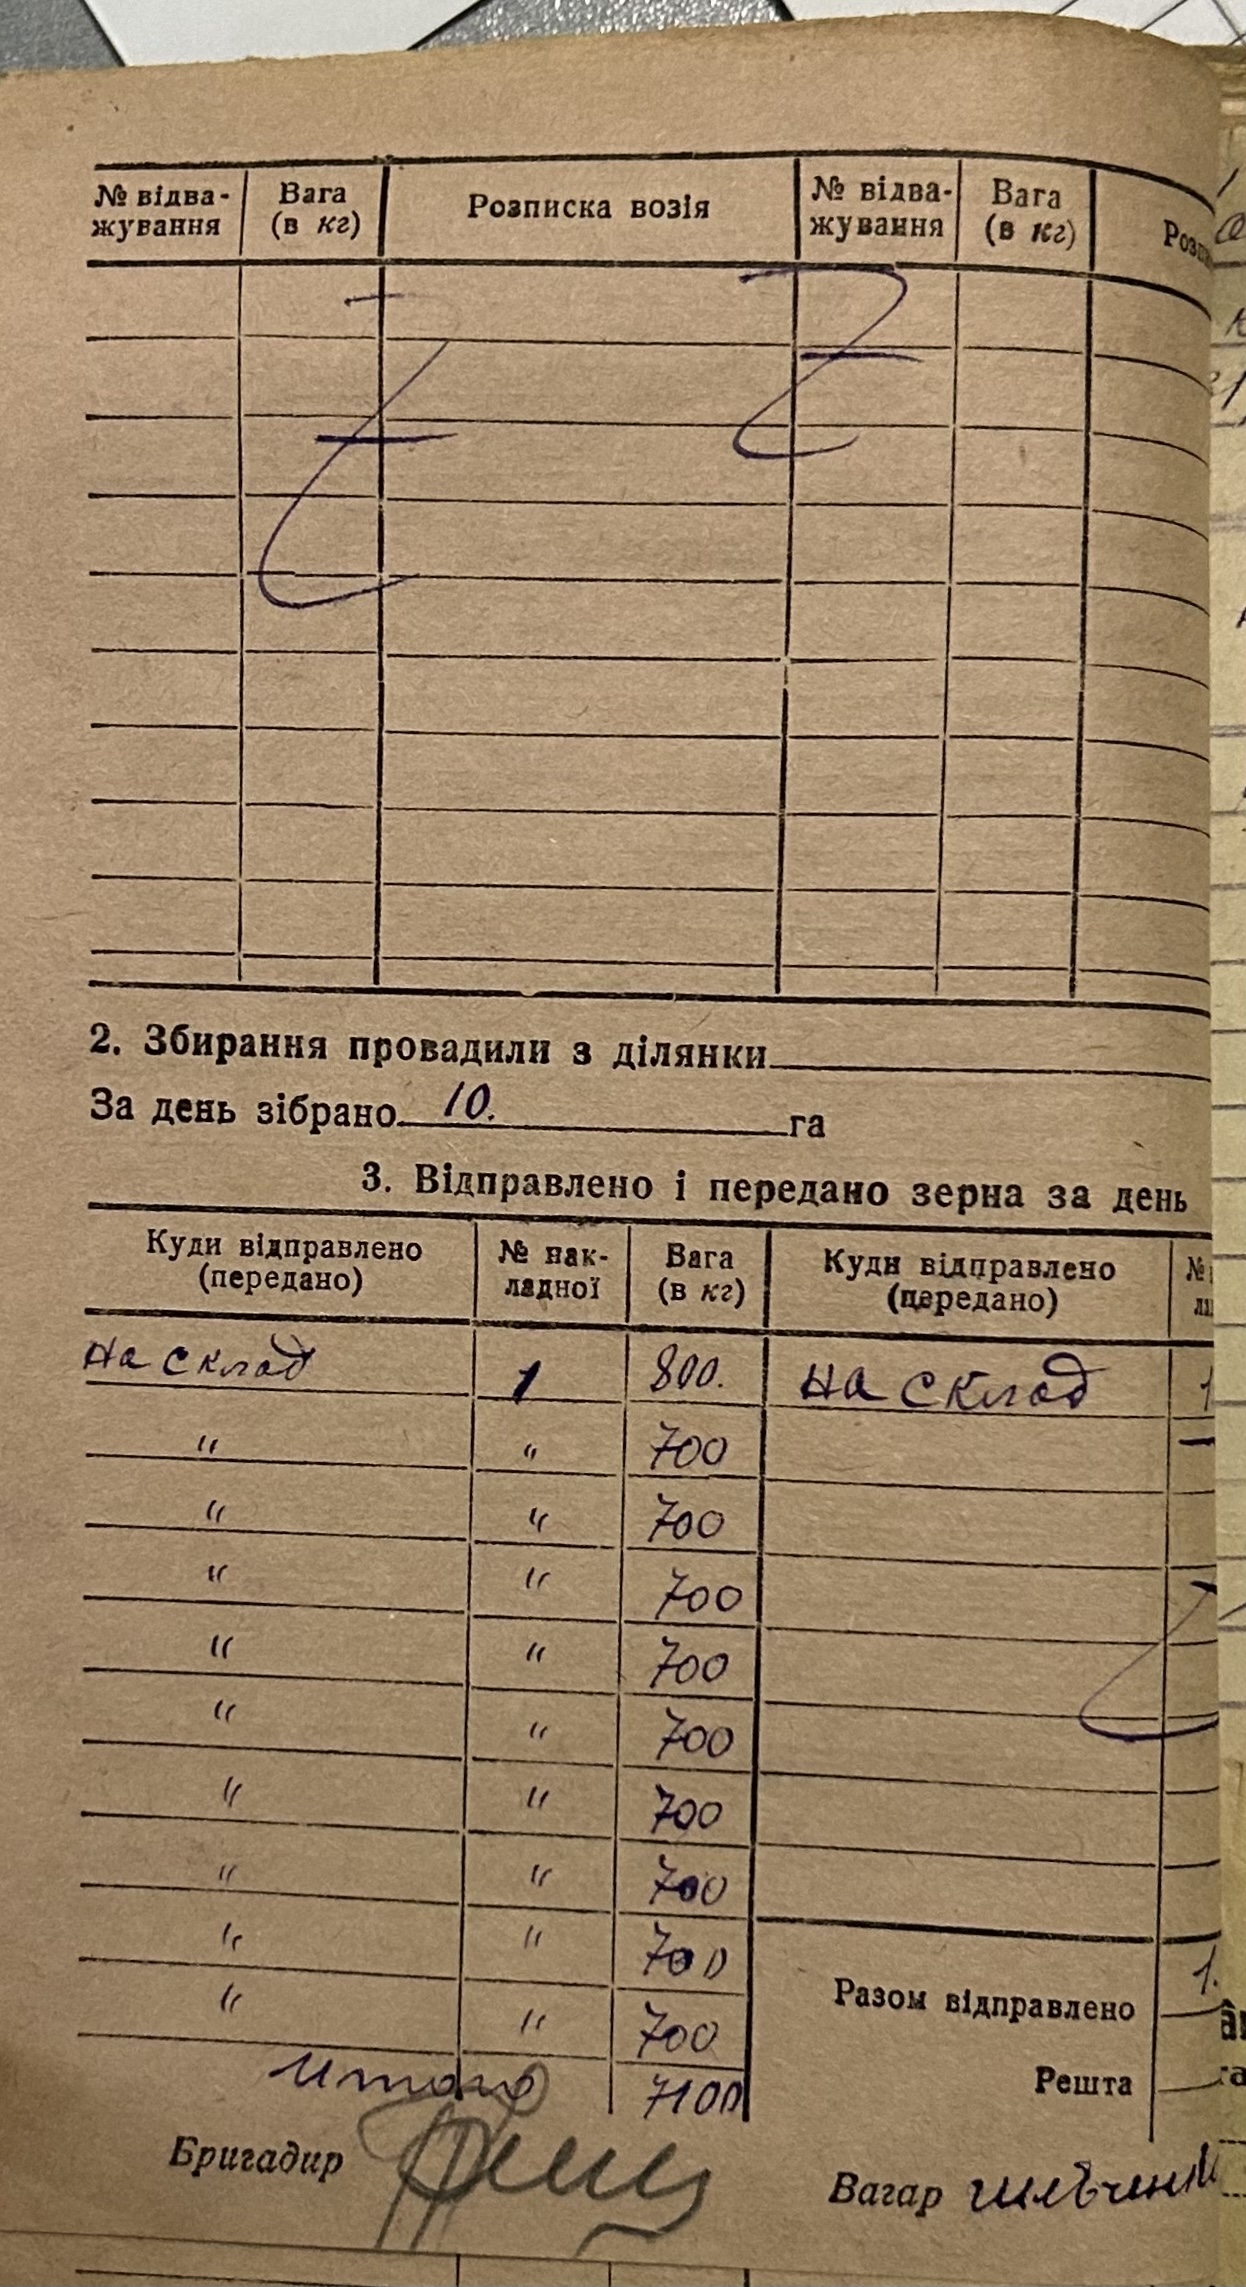 № відва-
жування
Вага
(в кг)
Розписка возія
№ відва-
жування
Вага
(в кг)
2. Збирання провадили з ділянки
За день зібрано 10. га
3. Відправлено і передано зерна за день
Куди відправлено
(передано)
№ нак-
ладної
Вага
(в кг)
Куди відправлено
(передано)
№
На склад 1 800. На склад 1
" " 700
" " 700
" " 700
" " 700
" " 700
" " 700
" " 700
" " 700
" " 700
Разом відправлено 1.
Итого 7100
Решта
Бригадир
Вагар